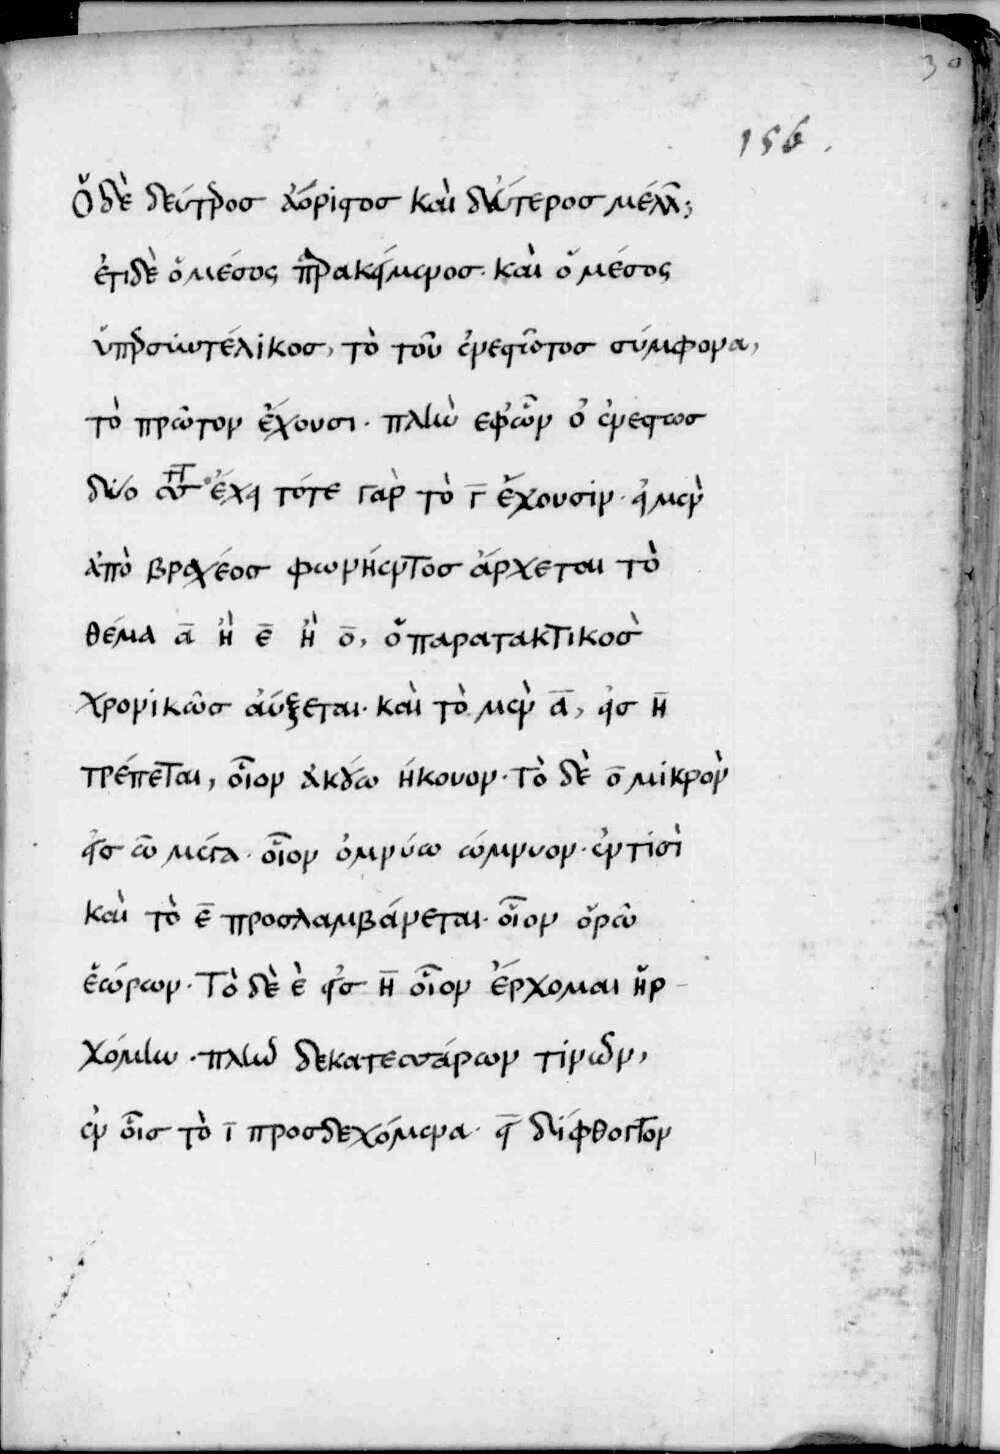 30
156.
Ὁ δὲ δεύτερος ἀόριστος καὶ δεύτερος μέλλων;
ἔτι δὲ ὁ μέσος παρακείμενος· καὶ ὁ μέσος
ὑπερσυντέλικος, τὸ τοῦ ἐνεστῶτος σύμφωνα,
τὸ πρῶτον ἔχουσι· πλὴν ἐφ' ὧν ὁ ἐνεστὼς
δύο ππ ἔχει τότε γὰρ τὸ γ̄ ἔχουσιν· εἰ μὲν
ἀπὸ βραχέος φωνήεντος ἄρχεται τὸ
θέμα ᾱ ἢ ε̄ ἢ ο̄, ὁ παρατακτικὸς
χρονικῶς αὔξεται· καὶ τὸ μὲν ᾱ, εἰς η̄
τρέπεται, οἷον ἀκούω ἤκουον· τὸ δὲ ο̄ μικρὸν
εἰς ω̄ μέγα· οἷον ὀμνύω ὤμνυον· ἐν τισὶ
καὶ τὸ ε̄ προσλαμβάνεται· οἷον ὁρῶ
ἑώρων· Τὸ δὲ ὲ εἰς η̄ οἷον ἔρχομαι ἠρ-
χόμην· πλὴν δεκατεσσάρων τινῶν,
ἐν οἷς τὸ ῑ προσδεχόμενα· ει δίφθογγον